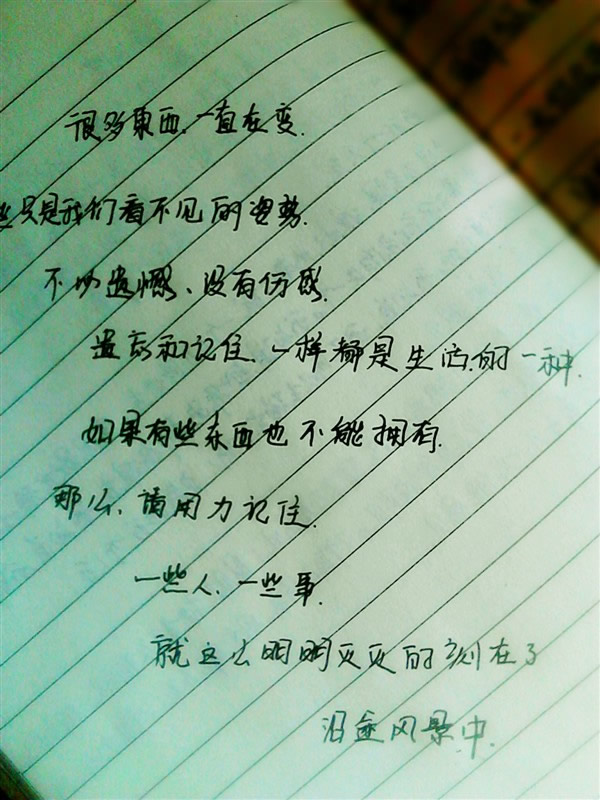 很多東西、一直在变.
些只是我们看不见的姿势.
不必遗憾、没有伤感.
遗忘和记住、一样都是生活的一种.
如果有些东西也不能拥有.
那么、請用力记住.
一些人、一些事.
就这么明明灭灭的刻在了
沿途风景中.